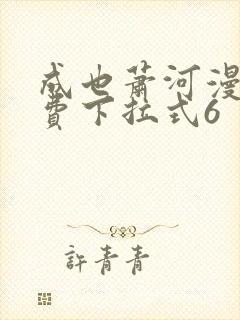 成也萧河漫
费下拉式6
許青青